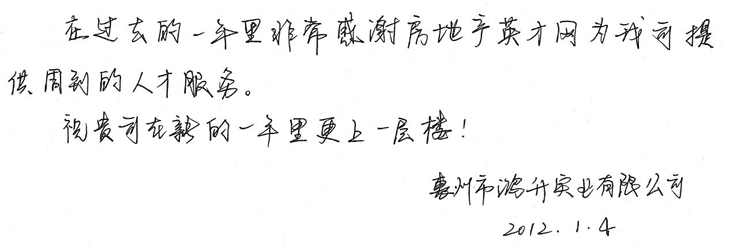 在过去的一年里非常感谢房地产英才网为我司提
供周到的人才服务。
祝贵司在新的一年里更上一层楼！
惠州市鸿升实业有限公司
2012.1.4